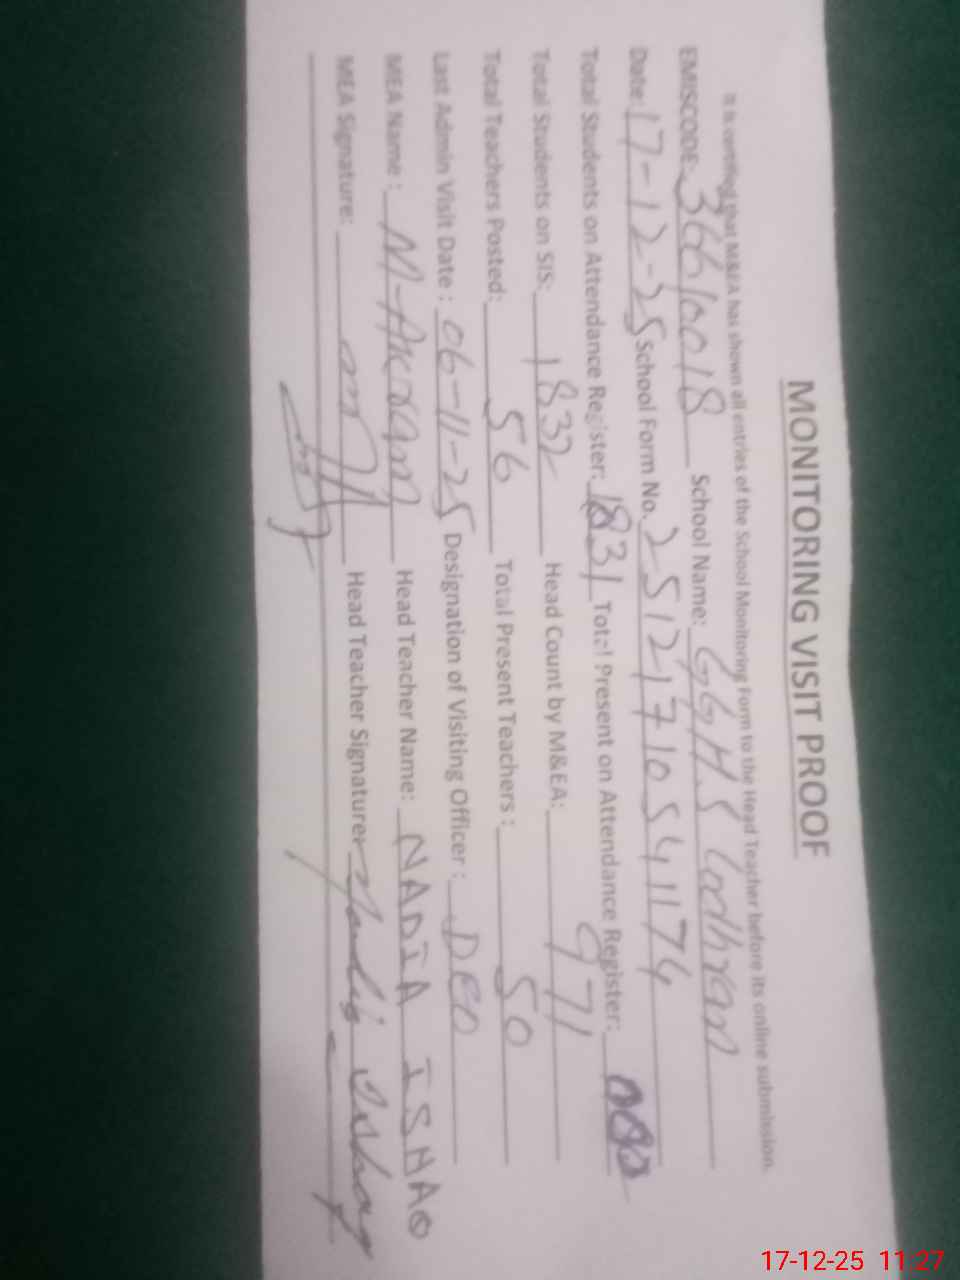 MONITORING VISIT PROOF
It is certified that M&EA has shown all entries of the School Monitoring Form to the Head Teacher before its online submission.
EMISCODE: 36610018 School Name: G.G.H.S Lodhran
Date: 17-12-25 School Form No. 25121710541174
Total Students on Attendance Register: 1831 Total Present on Attendance Register:
Total Students on SIS: 1832 Head Count by M&EA: 971
Total Teachers Posted: 56 Total Present Teachers : 50
Last Admin Visit Date : 06-11-25 Designation of Visiting Officer : DEO
MEA Name : M-Akram Head Teacher Name: NADIA ISHAQ
MEA Signature: Head Teacher Signature: Nadia Ishaq
17-12-25 11:27